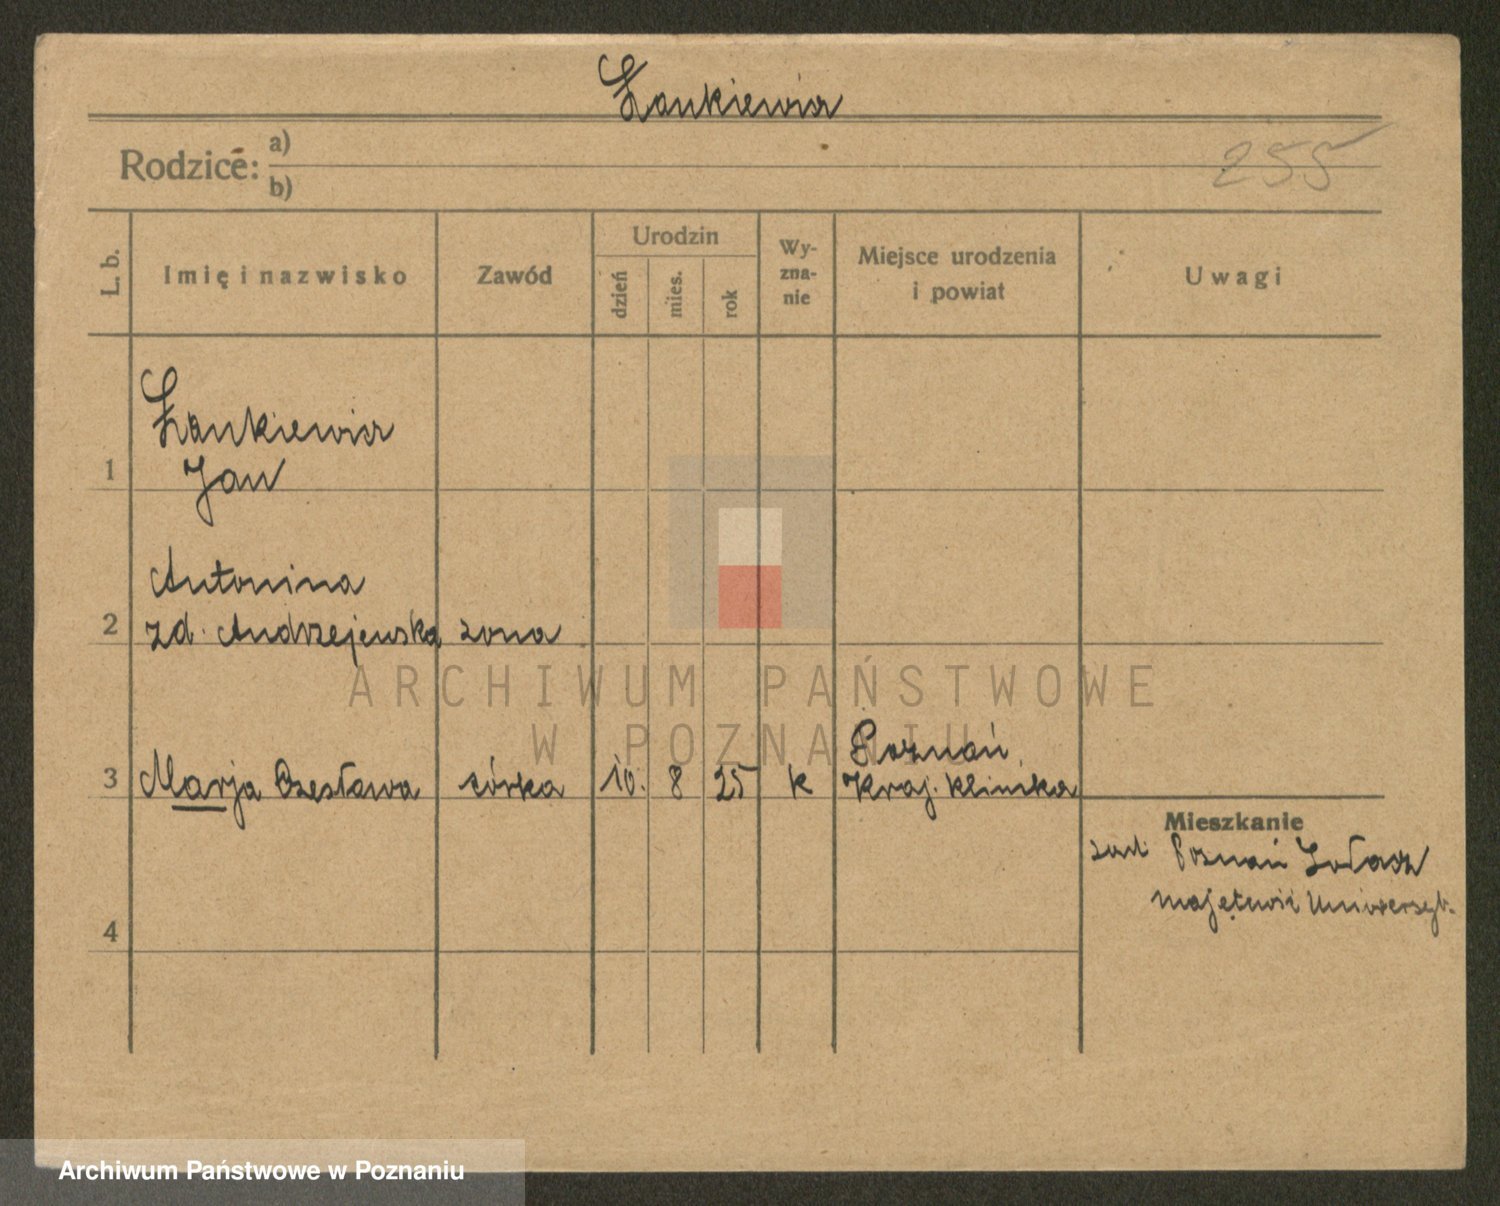 Łankiewicz
Rodzice:
a)
b)
255
L. b.
Imię i nazwisko
Zawód
Urodzin
dzień
mies.
rok
Wy-
zna-
nie
Miejsce urodzenia
i powiat
Uwagi
1
Łankiewicz
Jan
2
Antonina
zd. Andrzejewska żona
3
Marja Czesława córka 10. 8 25 k Poznań
Kraj. klinika
Mieszkanie
Poznań Sołacz
majętność Uniwersyt.
4
ARCHIWUM PAŃSTWOWE
W POZNANIU
Archiwum Państwowe w Poznaniu